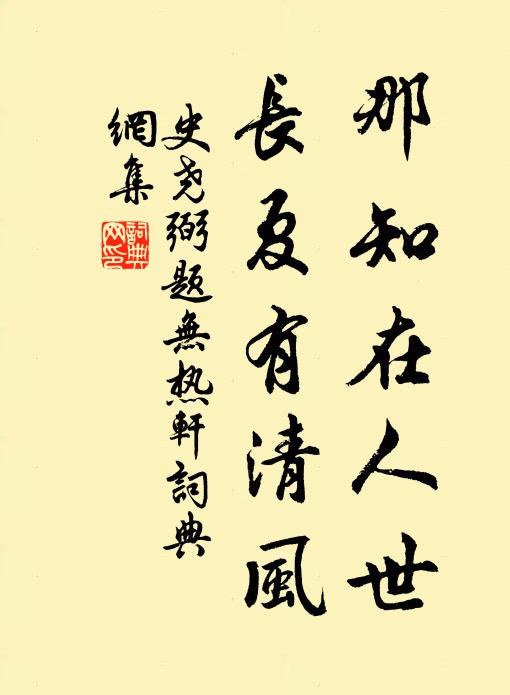 那知在人世
長夏有清風
史尧弼題無热軒詞典
網集
詞典
网印